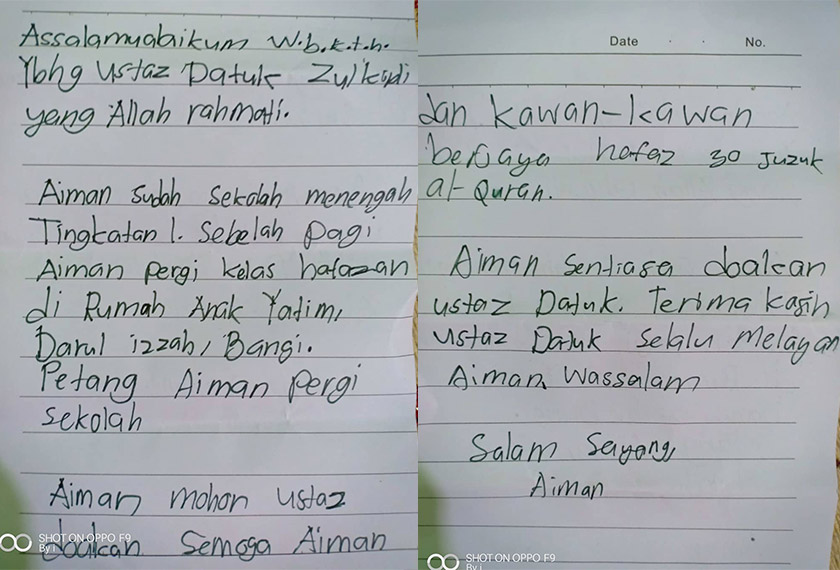 Assalamualaikum W.b.k.t.h.
Ybhg Ustaz Datuk Zulkadi
yang Allah rahmati.
Aiman sudah sekolah menengah
Tingkatan 1. Sebelah pagi
Aiman pergi kelas hafazan
di Rumah Anak Yatim,
Darul izzah, Bangi.
Petang Aiman pergi
sekolah
Aiman mohon ustaz
doakan semoga Aiman
SHOT ON OPPO F9
By i
Date . . No.
dan kawan-kawan
berjaya hafaz 30 Juzuk
al-Quran.
Aiman sentiasa doakan
ustaz Datuk. Terima kasih
ustaz Datuk selalu melayan
Aiman. Wassalam
Salam Sayang,
Aiman
SHOT ON OPPO F9
By i